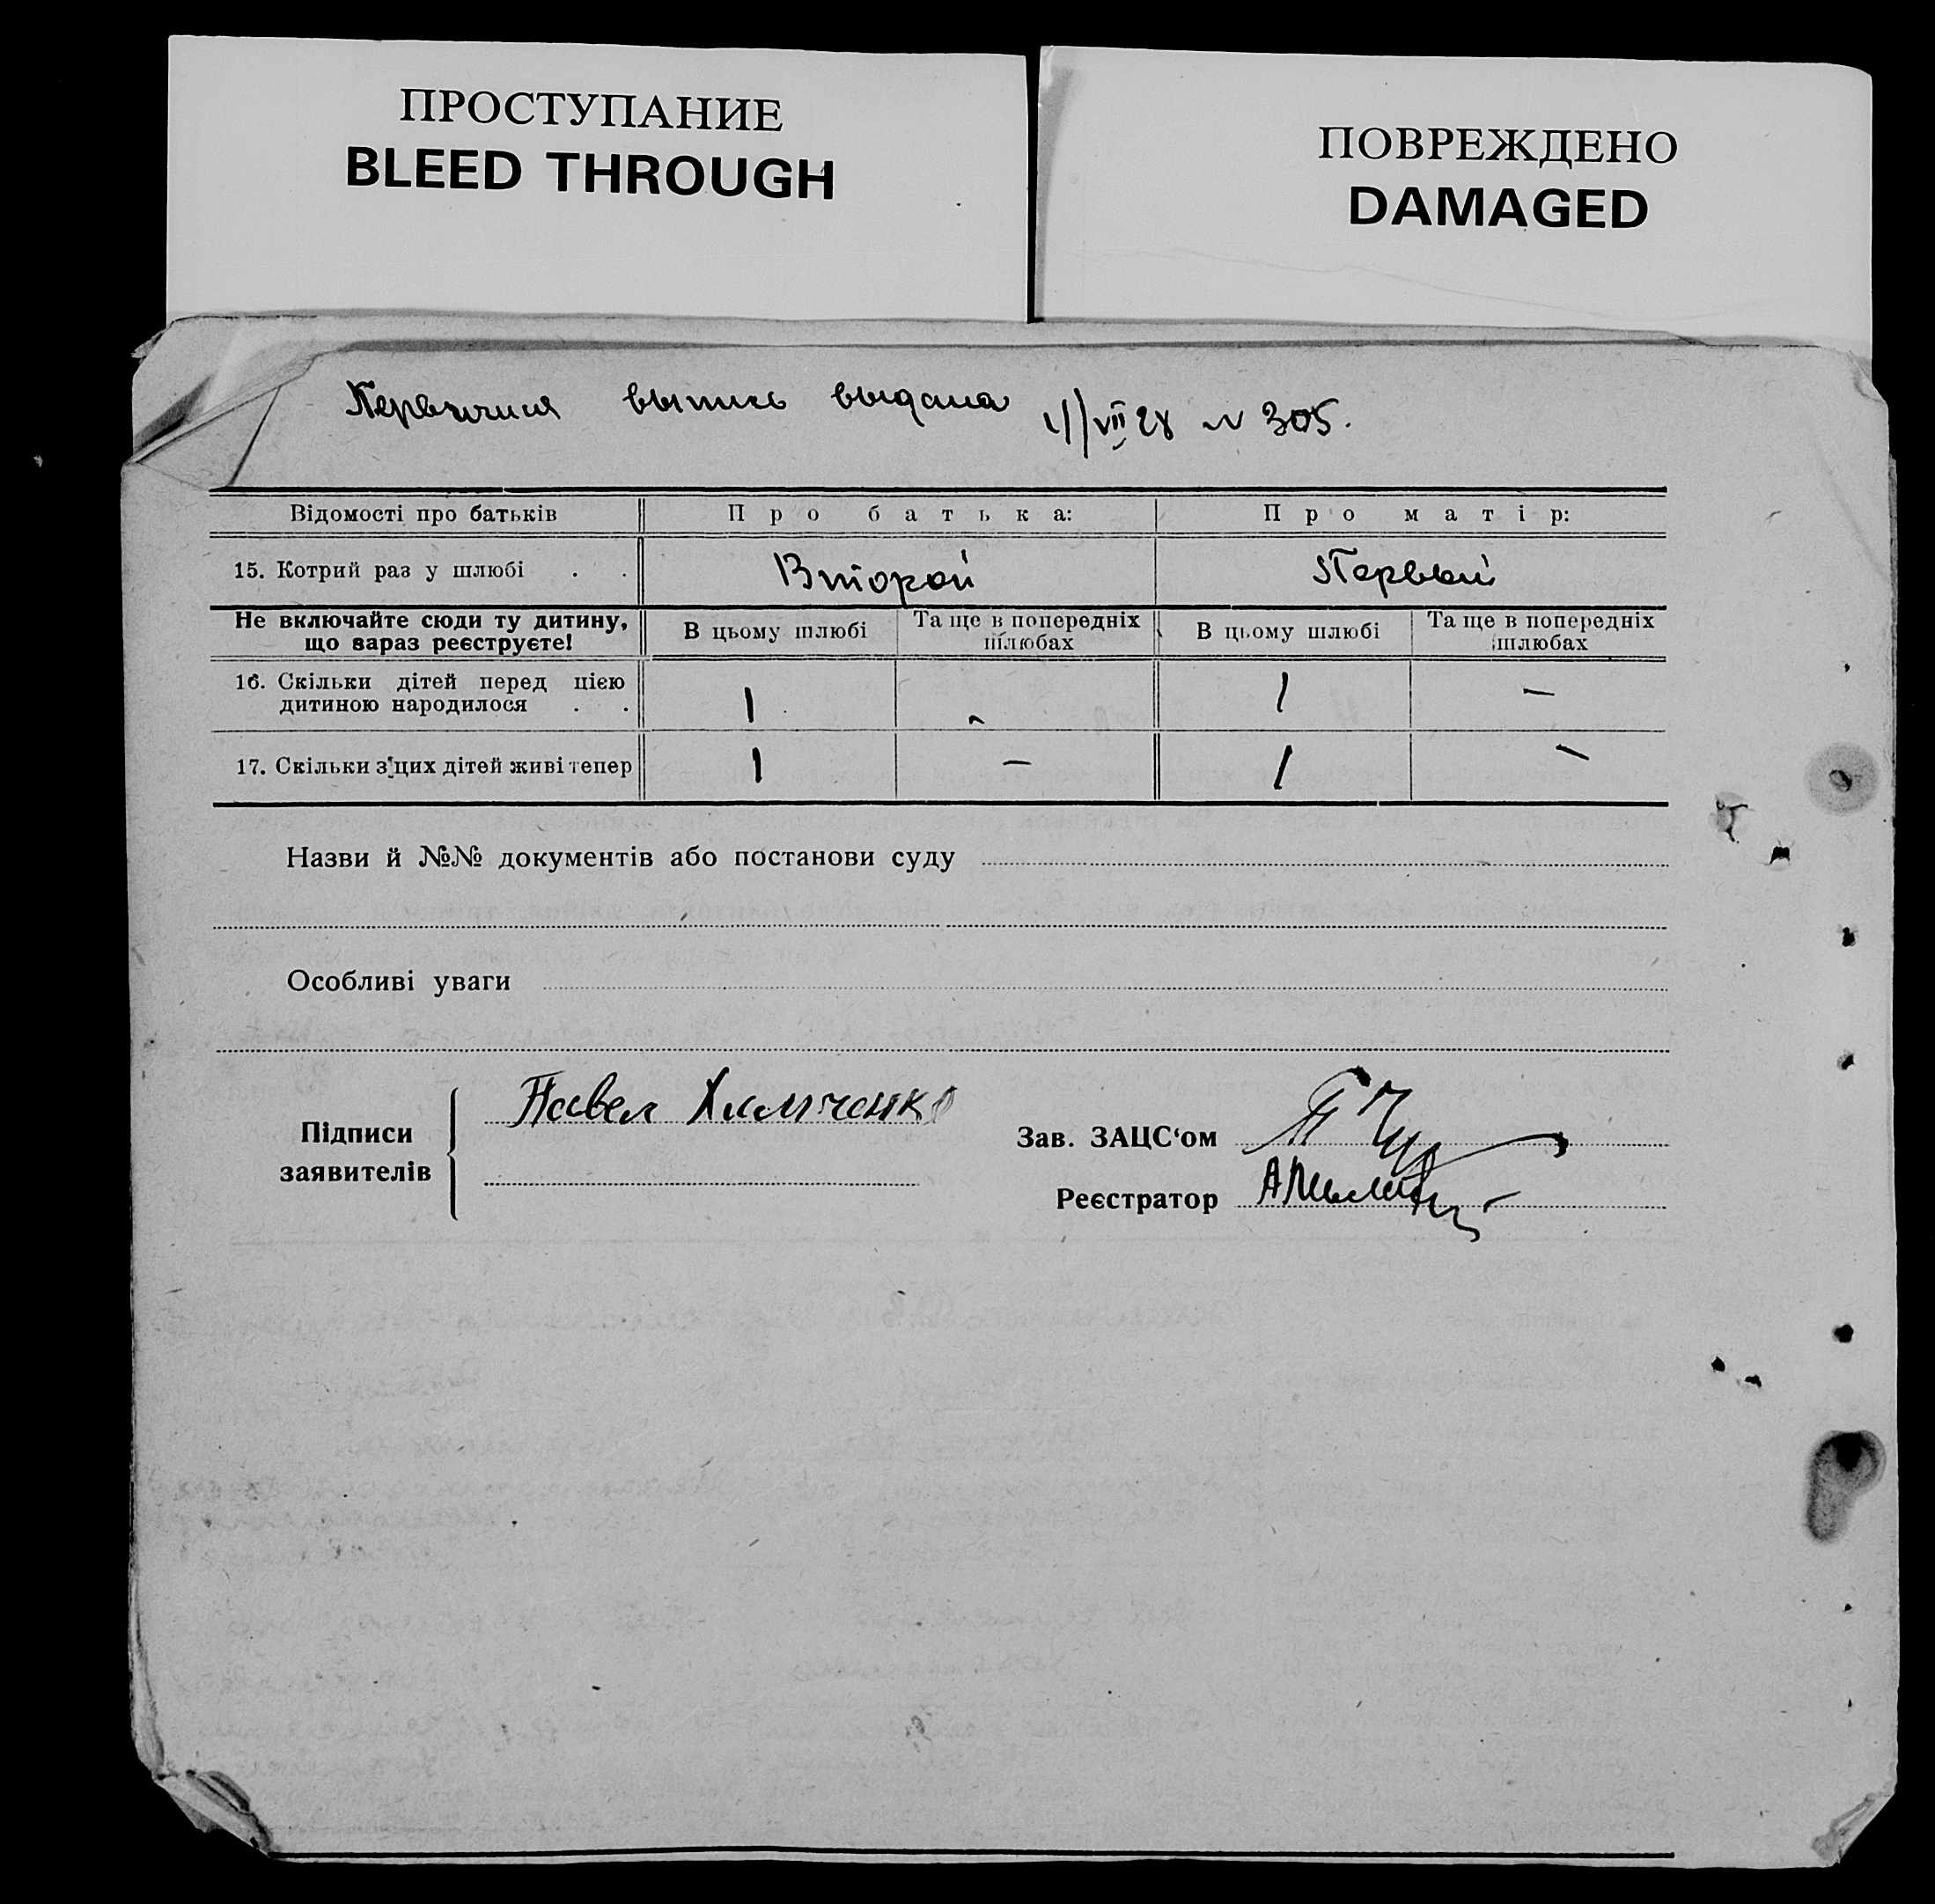 ПРОСТУПАНИЕ
BLEED THROUGH
ПОВРЕЖДЕНО
DAMAGED
Первичная выпись выдана VII 28 N 305.
Відомості про батьків Про батька: Про матір:
15. Котрий раз у шлюбі . . Второй Первый
Не включайте сюди ту дитину, що вараз реєструєте! В цьому шлюбі Та ще в попередніх шлюбах В цьому шлюбі Та ще в попередніх шлюбах
16. Скільки дітей перед цією дитиною народилося . . 1 - 1 -
17. Скільки з цих дітей живі тепер 1 - 1 -
Назви й №№ документів або постанови суду
Особливі уваги
Підписи заявителів Павел Химченко
Зав. ЗАЦС‘ом
Реєстратор